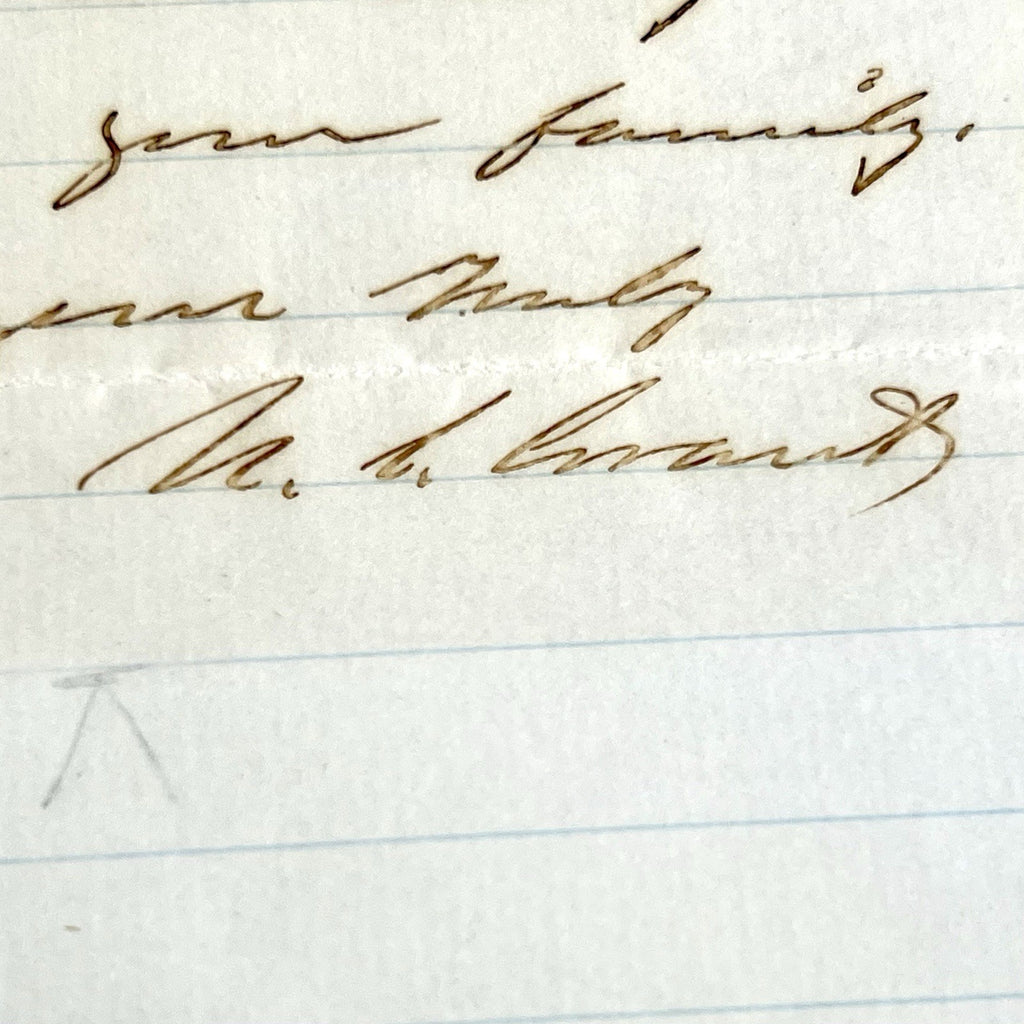 your family.
Yours Truly
U. S. Grant